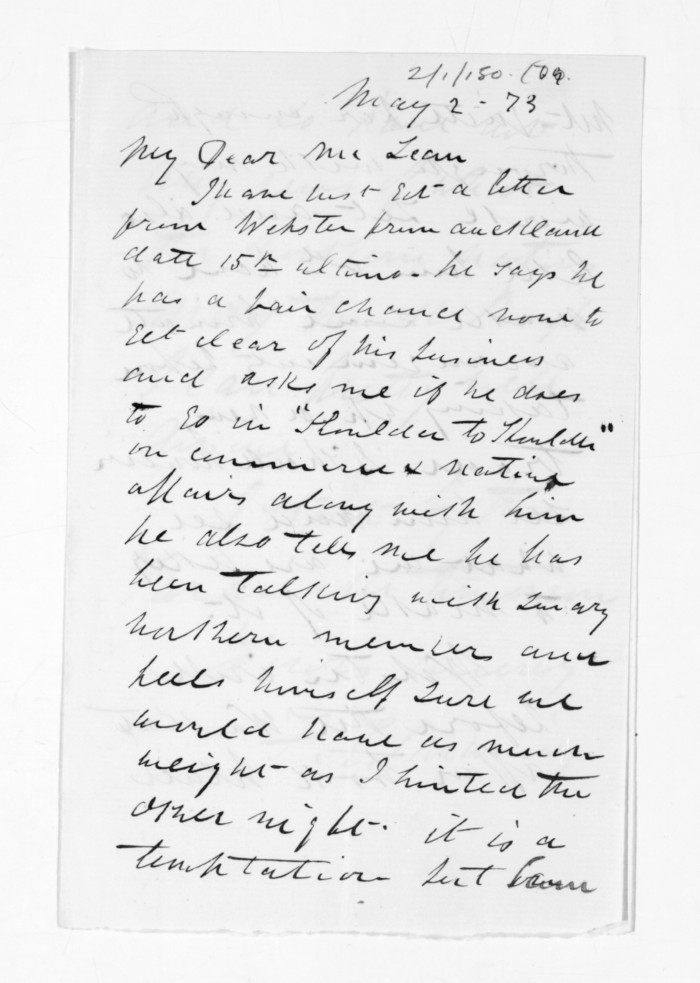 2/1/150.
May 2 - 73
My Dear Mc Lean
I have just got a letter
from Webster from auckland
date 15th ultimo - he says he
has a fair chance now to
get clear of his business
and asks me if he does
to go in "Shoulder to Shoulder"
on commerce & native
affairs along with him
he also tells me he has
been talking with
northern members and
feels himself sure we
would have as much
weight as I hinted the
other night. it is a
temptation but